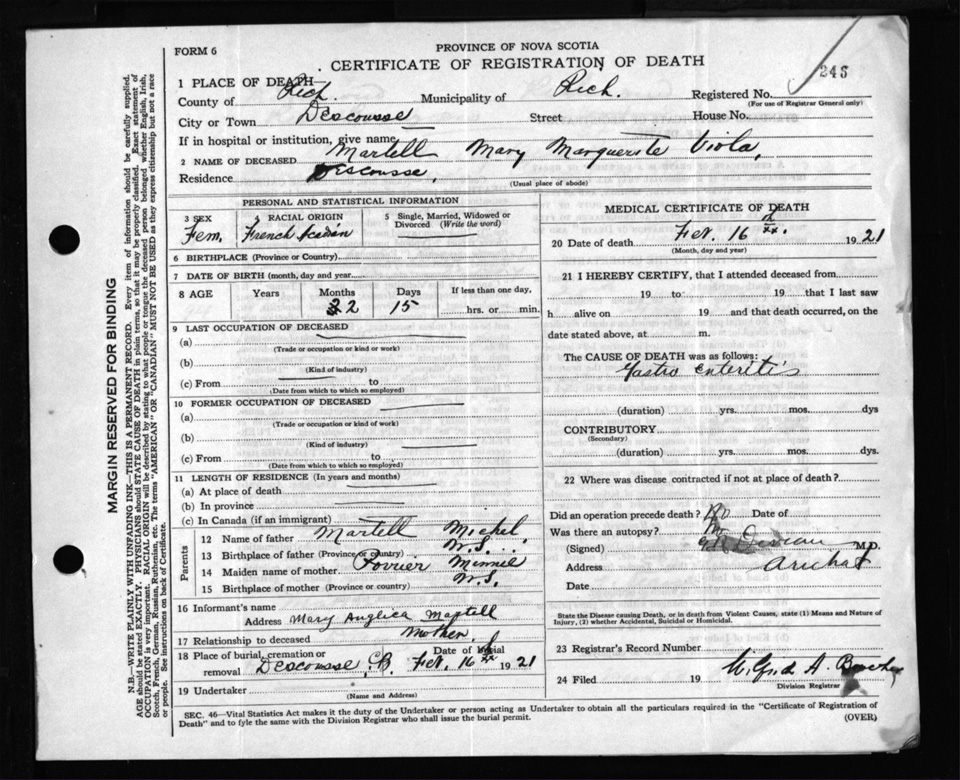 FORM 6
PROVINCE OF NOVA SCOTIA
CERTIFICATE OF REGISTRATION OF DEATH
245
1 PLACE OF DEATH—
County of Rich. Municipality of Rich. Registered No.
(For use of Registrar General only)
City or Town Descousse Street House No.
If in hospital or institution, give name
2 NAME OF DECEASED Martell Mary Marguerite Viola,
Residence Descousse,
(Usual place of abode)
PERSONAL AND STATISTICAL INFORMATION
3 SEX Fem. RACIAL ORIGIN French Acadian 5 Single, Married, Widowed or Divorced (Write the word)
6 BIRTHPLACE (Province or Country)
7 DATE OF BIRTH (month, day and year)
8 AGE Years Months 2 Days 15 If less than one day, hrs. or min.
9 LAST OCCUPATION OF DECEASED
(a)
(Trade or occupation or kind or work)
(b)
(Kind of industry)
(c) From to
(Date from which to which so employed)
10 FORMER OCCUPATION OF DECEASED
(a)
(Trade or occupation or kind of work)
(b)
(Kind of industry)
(c) From to
(Date from which to which so employed)
11 LENGTH OF RESIDENCE (In years and months)
(a) At place of death
(b) In province
(c) In Canada (if an immigrant)
Parents
12 Name of father Martell Michel
13 Birthplace of father (Province or country) N.S.
14 Maiden name of mother Poirier Minnie
15 Birthplace of mother (Province or country) N.S.
16 Informant's name
Address Mary Anglica Martell
17 Relationship to deceased Mother
18 Place of burial, cremation or removal Descousse, C.B. Date of burial Feb. 16 1921
19 Undertaker
(Name and Address)
MEDICAL CERTIFICATE OF DEATH
20 Date of death Feb. 16 1921
(Month, day and year)
21 I HEREBY CERTIFY, that I attended deceased from
19 to 19 that I last saw
h alive on 19 and that death occurred, on the
date stated above, at m.
The CAUSE OF DEATH was as follows:
Gastro enteritis
(duration) yrs. mos. dys
CONTRIBUTORY
(Secondary)
(duration) yrs. mos. dys.
22 Where was disease contracted if not at place of death?
Did an operation precede death? No Date of
Was there an autopsy? No
(Signed) M.D.
Address Arichat
Date
State the Disease causing Death, or in death from Violent Causes, state (1) Means and Nature of
Injury, (2) whether Accidental, Suicidal or Homicidal.
23 Registrar's Record Number
24 Filed 19
Division Registrar
SEC. 46—Vital Statistics Act makes it the duty of the Undertaker or person acting as Undertaker to obtain all the particulars required in the "Certificate of Registration of
Death" and to fyle the same with the Division Registrar who shall issue the burial permit.
(OVER)
MARGIN RESERVED FOR BINDING
N.B.—WRITE PLAINLY WITH UNFADING INK—THIS IS A PERMANENT RECORD. Every item of information should be carefully supplied.
AGE should be stated EXACTLY. PHYSICIANS should STATE CAUSE OF DEATH in plain terms, so that it may be properly classified. Exact statement of
OCCUPATION is very important. RACIAL ORIGIN will be described by stating to what people or tongue the deceased person belonged whether English, Irish,
Scotch, French, German, Russian, Ruthenian, etc. The terms "AMERICAN" OR "CANADIAN" MUST NOT BE USED as they express citizenship but not a race
or people. See instructions on back of Certificate.